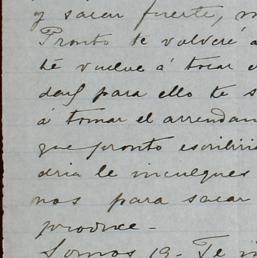 y sacar fuerte, 
Pronto te volveré á
te vuelve á tocar
das para ello te s
á tomar el arrendam
que pronto escribiri
dria le inculques
nos para sacar
produce.-
Somos 19- Te